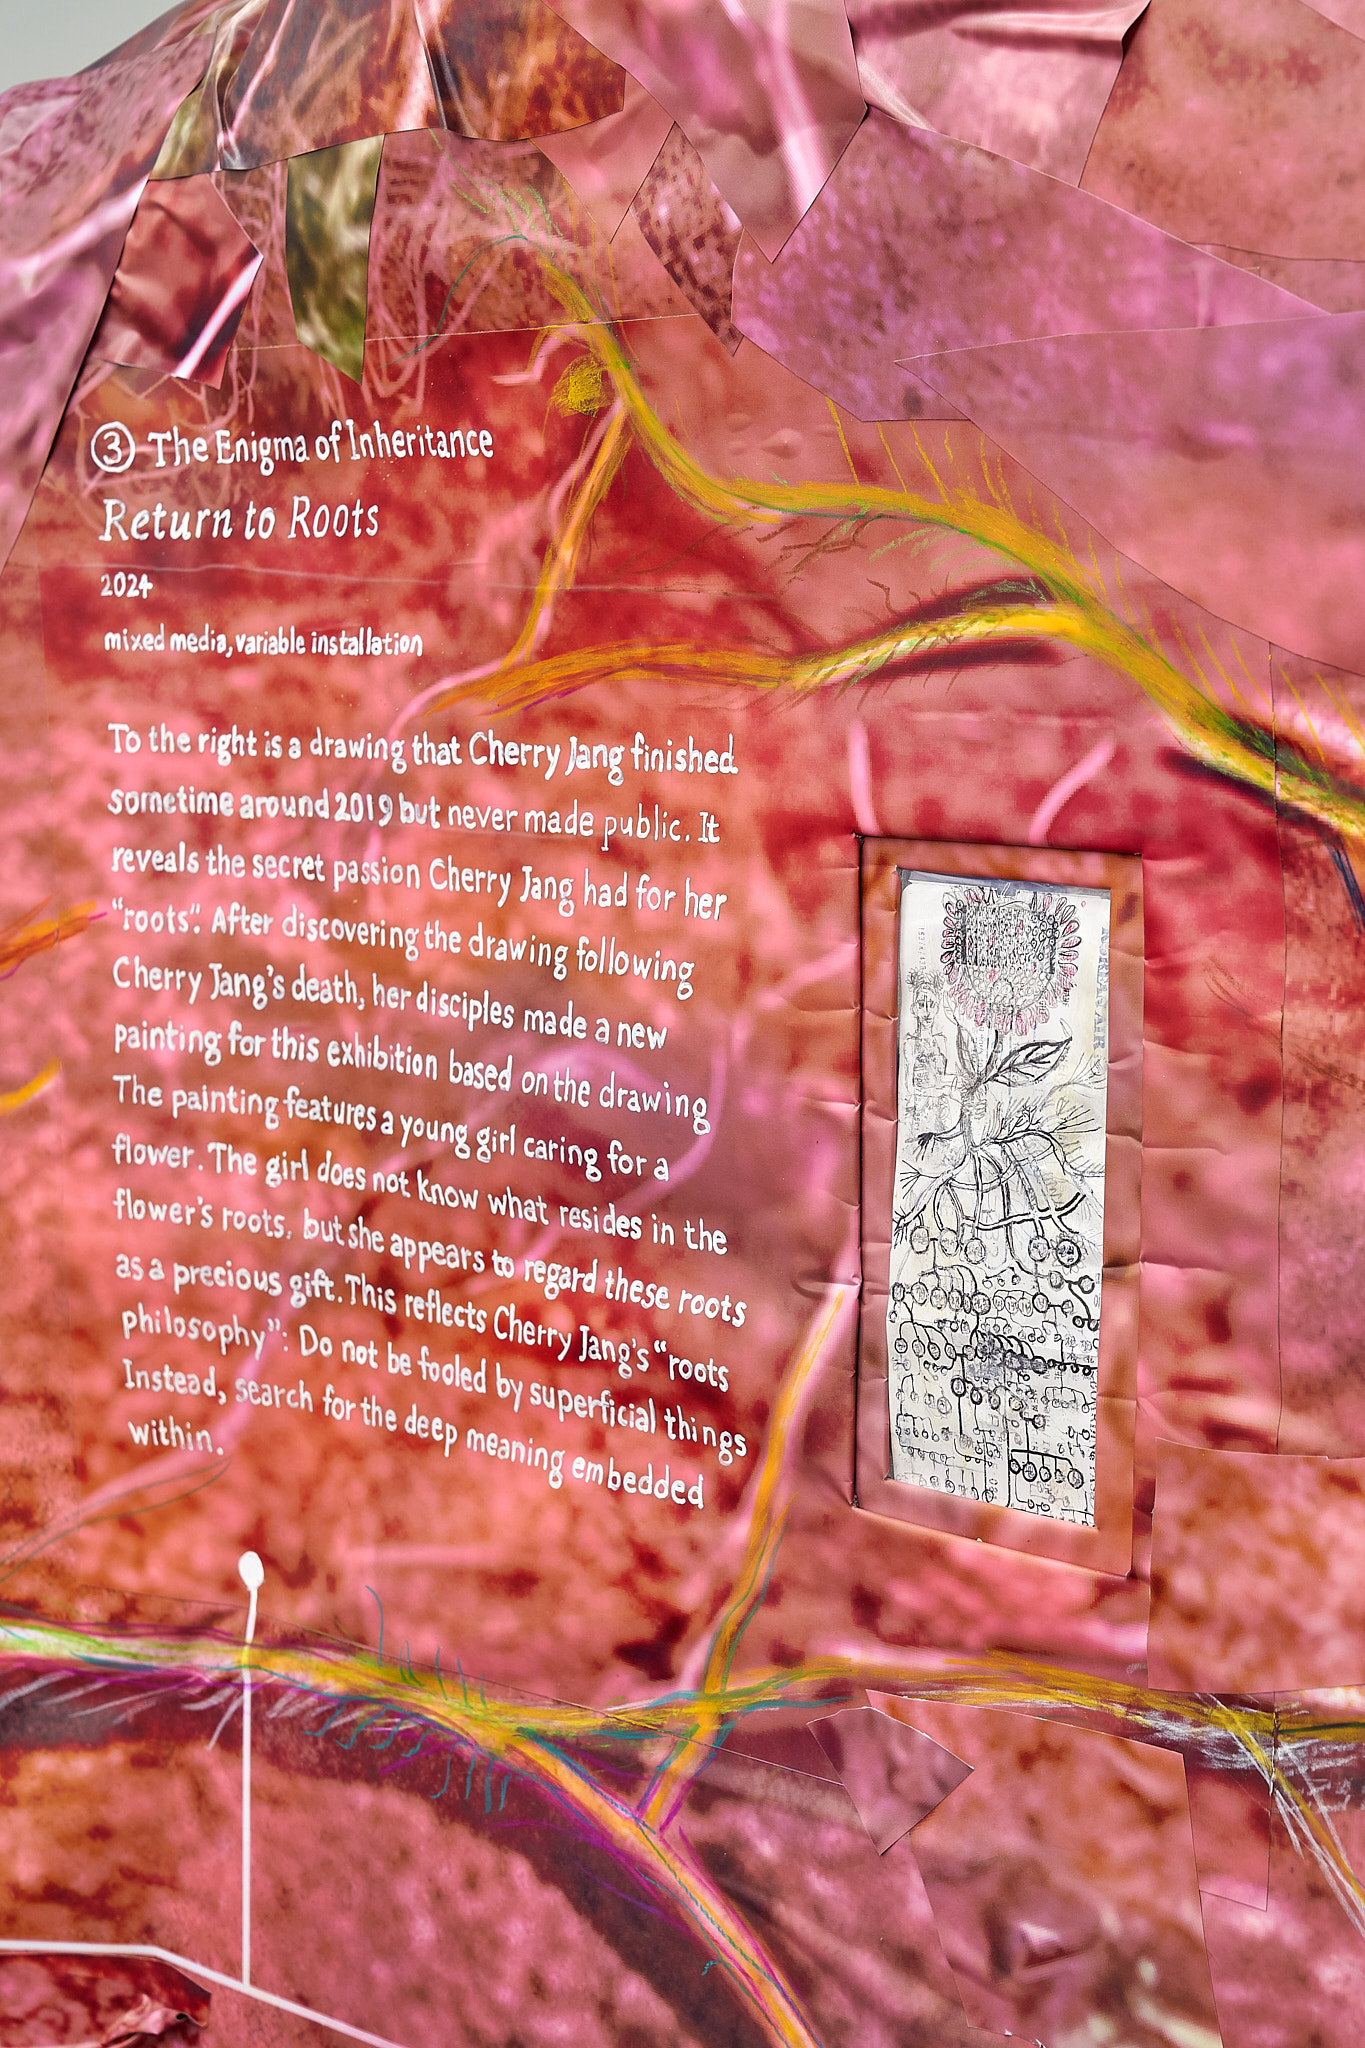 ③ The Enigma of Inheritance
Return to Roots
2024
mixed media, variable installation
To the right is a drawing that Cherry Jang finished
sometime around 2019 but never made public. It
reveals the secret passion Cherry Jang had for her
“roots”. After discovering the drawing following
Cherry Jang's death, her disciples made a new
painting for this exhibition based on the drawing
The painting features a young girl caring for a
flower. The girl does not know what resides in the
flower's roots, but she appears to regard these roots
as a precious gift. This reflects Cherry Jang's “roots
philosophy”: Do not be fooled by superficial things
Instead, search for the deep meaning embedded
within.